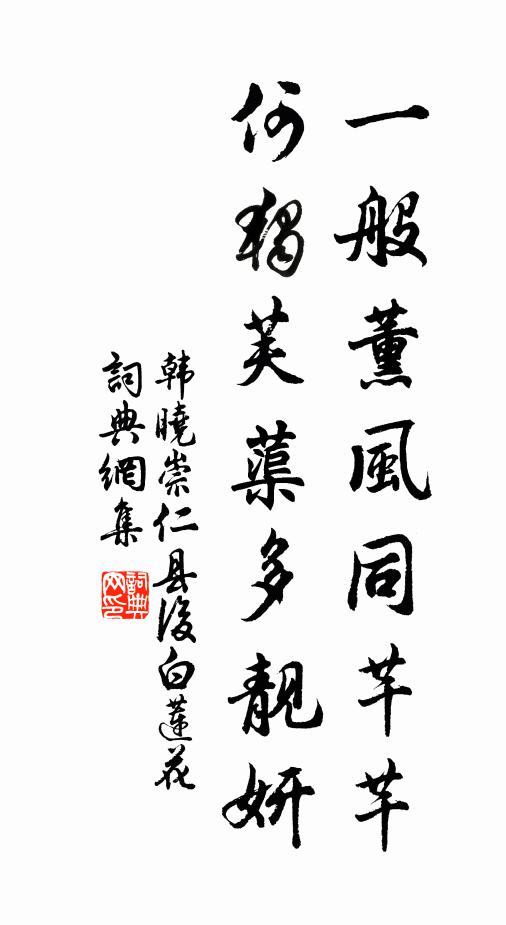 一般薰風同芊芊
何獨芙蕖多靚妍
韩曉崇仁县後白蓮花
詞典網集
詞典网印